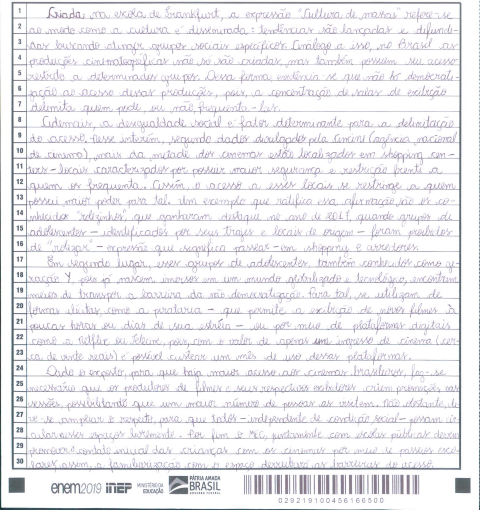 1 Criada na escola de Frankfurt, a expressão "Cultura de massa" refere-se
2 ao modo como a cultura é disseminada: tendências são lançadas e difundi-
3 das buscando atingir grupos sociais específicos. Análogo a isso, no Brasil as
4 produções cinematográficas não só são criadas, mas também possuem seu acesso
5 restrito a determinados grupos. Dessa forma, evidencia-se que não há democrati-
6 zação ao acesso dessas produções, pois, a concentração de salas de exibição
7 delimita quem pode, ou não, frequentá-las.
8 Ademais, a desigualdade social é fator determinante para a delimitação
9 do acesso. Nesse ínterim, segundo dados divulgados pela (agência nacional
10 de cinema), mais da metade dos cinemas estão localizados em shopping cen-
11 ters - locais caracterizados por possuir maior segurança e restrição frente a
12 quem os frequenta. Assim, o acesso a esses locais se restringe a quem
13 possui maior poder para tal. Um exemplo que ratifica essa afirmação são os co-
14 nhecidos "rolezinhos", que ganharam destaque no ano de quando grupos de
15 adolescentes - identificados por seus trajes e locais de origem - foram proibidos
16 de "rolezar" - expressão que significa passear - em shoppings e arredores.
17 Em segundo lugar, esses grupos de adolescentes, também conhecidos como ge-
18 ração Y pois já nascem imersos em um mundo globalizado e tecnológico, encontram
19 meios de transpor a barreira da não democratização. Para tal, se utilizam de
20 formas ilícitas como a pirataria - que permite a exibição de novos filmes à
21 poucas horas ou dias de sua estréia - ou por meio de plataformas digitais
22 como a Netflix ou Telecine, pois, com o valor de apenas um ingresso de cinema (cer-
23 ca de vinte reais) é possível custear um mês de uso dessas plataformas.
24 Dado o exposto, para que haja maior acesso aos cinemas brasileiros, faz-se
25 necessário que os produtores de filmes e seus respectivos exibidores criem promoções nas
26 sessões, possibilitando que um maior número de pessoas as visitem. Não obstante, de-
27 ve-se ampliar o respeito, para que todos - independente de condição social - possam cir-
28 cular esses espaços livremente. Por fim o MEC, juntamente com escolas públicas devem
29 promover o contato anual das crianças com os cinemas por meio de passeios esco-
30 lares, assim, a familiarização com o espaço derrubará as barreiras de acesso.
enem2019 INEP MINISTÉRIO DA EDUCAÇÃO PÁTRIA AMADA BRASIL GOVERNO FEDERAL
029219100456166500